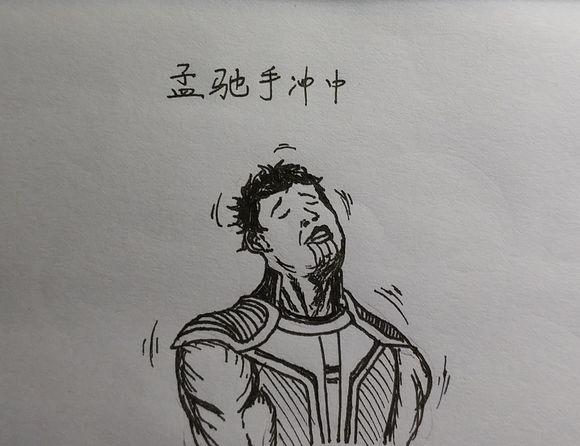 孟驰手冲中